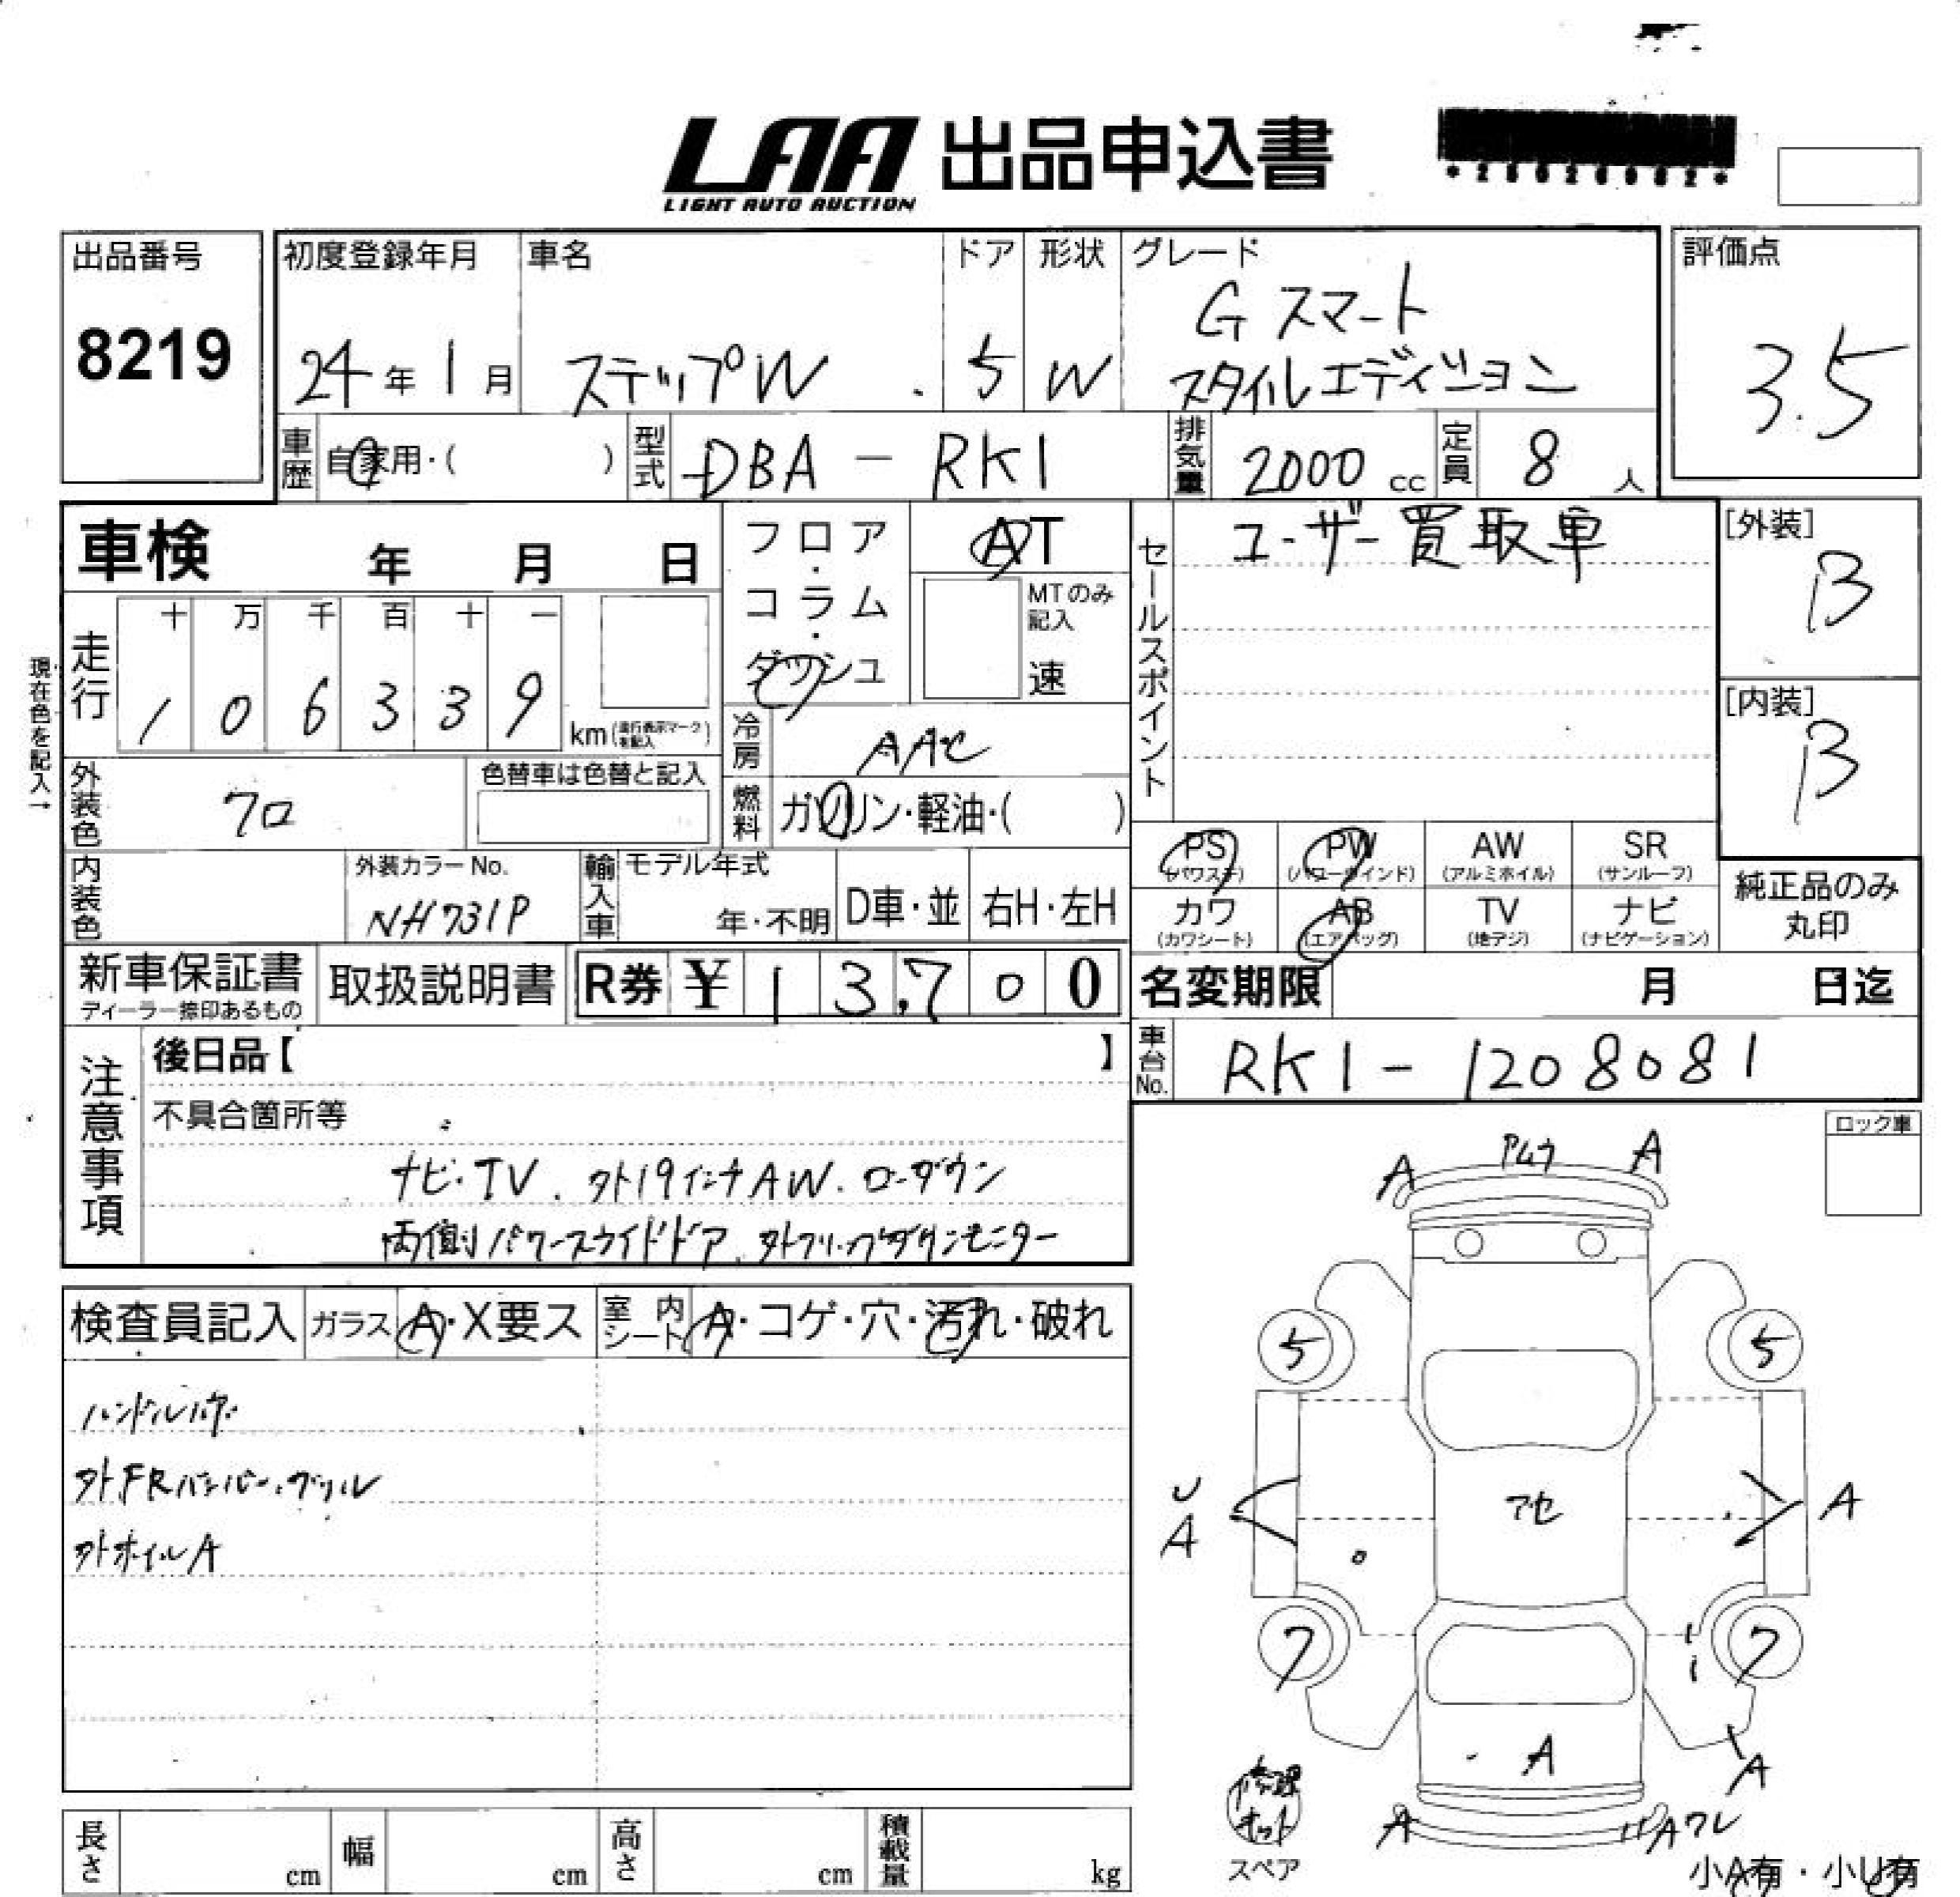 LAA 出品申込書
LIGHT AUTO AUCTION
出品番号
8219
初度登録年月
24年1月
車名
ステップW
ドア
5
形状
W
グレード
Gスマート
スタイルエディション
評価点
3.5
車歴 自家用・( )
型式 DBA-RK1
排気量 2000 cc
定員 8 人
車検 年 月 日
フロア・コラム・ダッシュ
AT
MTのみ記入
速
セールスポイント
ユーザー買取車
[外装]
B
[内装]
B
現在色を記入→
走行
十 万 千 百 十 一
1 0 6 3 3 9
km(走行表示マークを記入)
冷房 AAC
燃料 ガソリン・軽油・( )
外装色 クロ
色替車は色替と記入
内装色
外装カラーNo.
NH731P
輸入車
モデル年式
年・不明
D車・並
右H・左H
PS (パワステ)
PW (パワーウインド)
AW (アルミホイル)
SR (サンルーフ)
カワ (カワシート)
AB (エアバッグ)
TV (地デジ)
ナビ (ナビゲーション)
純正品のみ
丸印
新車保証書
ディーラー捺印あるもの
取扱説明書
R券 ¥ 13,700
名変期限 月 日迄
車台No. RK1-1208081
注意事項
後日品【 】
不具合箇所等
ナビ・TV、外19インチAW、ローダウン
両側パワースライドドア、外フリップダウンモニター
ロック車
検査員記入
ガラス A・X要ス
室内シート A・コゲ・穴・汚れ・破れ
外FRバンパー、グリル
外ホイルA
A A
5 5
U
A
アセ
A
7 7
A
A
修理キット
スペア
A
Aワレ
小A有・小U有
長さ cm
幅 cm
高さ cm
積載量 kg